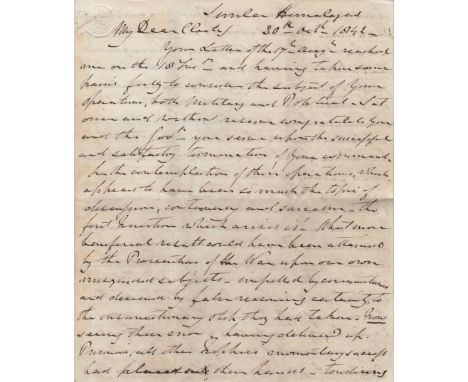 Simla Himalayas
My Dear Cloete 20th Octr 1842
Your Letter of the 17th Augt reached
me on the 18 Inst and having taken some
pains fully to consider the subject of Your
operations both Military and Political I at
once and without reserve congratulate You
and the Govt you serve upon the successful
and satisfactory termination of Your command
In the contemplation of these operations which
appears to have been so much the topic of
discussion, controversy and sarcasm the
first Question which arises is What more
beneficial result could have been attained
by the Prosecution of the War upon our own
misguided subjects impelled by circumstances
and deceived by false reasoning certainly to
the step they had taken. Now
seeing their error, having delivered up
Prisoners, all other trophies momentary success
had placed in their hands tendering